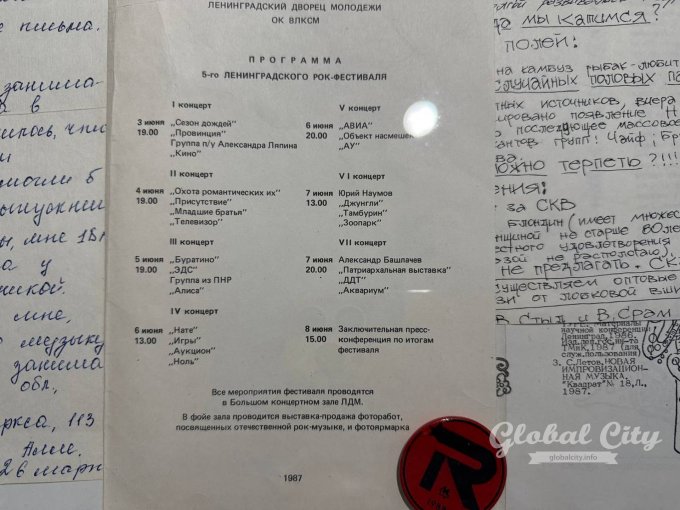 ЛЕНИНГРАДСКИЙ ДВОРЕЦ МОЛОДЕЖИ
ОК ВЛКСМ
ПРОГРАММА
5-го ЛЕНИНГРАДСКОГО РОК-ФЕСТИВАЛЯ
I концерт
3 июня „Сезон дождей"
19.00 „Провинция"
Группа п/у Александра Ляпина
„Кино"
II концерт
4 июня „Охота романтических их"
19.00 „Присутствие"
„Младшие братья"
„Телевизор"
III концерт
5 июня „Буратино"
19.00 „ЭДС"
Группа из ПНР
„Алиса"
IV концерт
6 июня „Нате"
13.00 „Игры"
„Аукцион"
„Ноль"
V концерт
6 июня „АВИА"
20.00 „Объект насмешек
„АУ"
VI концерт
7 июня Юрий Наумов
13.00 „Джунгли"
„Тамбурин"
„Зоопарк"
VII концерт
7 июня Александр Башлачев
20.00 „Патриархальная выставка"
„ДДТ"
„Аквариум"
8 июня Заключительная пресс-
15.00 конференция по итогам
фестиваля
Все мероприятия фестиваля проводятся
в Большом концертном зале ЛДМ.
В фойе зала проводится выставка-продажа фоторабот,
посвященных отечественной рок-музыке, и фотоярмарка
1987
R
письма.
занима
в
илось, что
ы, мне 18
у
мне,
музыку
занима
обл.,
аркса, 113
Алле.
26 марта
мы катимся?
полей:
на камбуз рыбак-любит
случайных половых па
тных источников, вчера
ировано появление Н
последующее массовое
антов групп: Чайф, Бр
ожно терпеть?!!!
ения:
за СКВ
блондин (имеет множес
нщиной не старше 80ле
естного удовлетворения
озой не располагаю),
не предлагать.
осуществляем оптовые
зи от лобковой вши
В. Стыд и В. Срам
Материалы
научной конференции
Ленинград, 1986.
ТМиК, 1987 (для
служ.пользования)
3. С.Летов. НОВАЯ
ИМПРОВИЗАЦИОН-
НАЯ МУЗЫКА.
"Квадрат" № 18, Л.,
1987.
Global City
globalcity.info